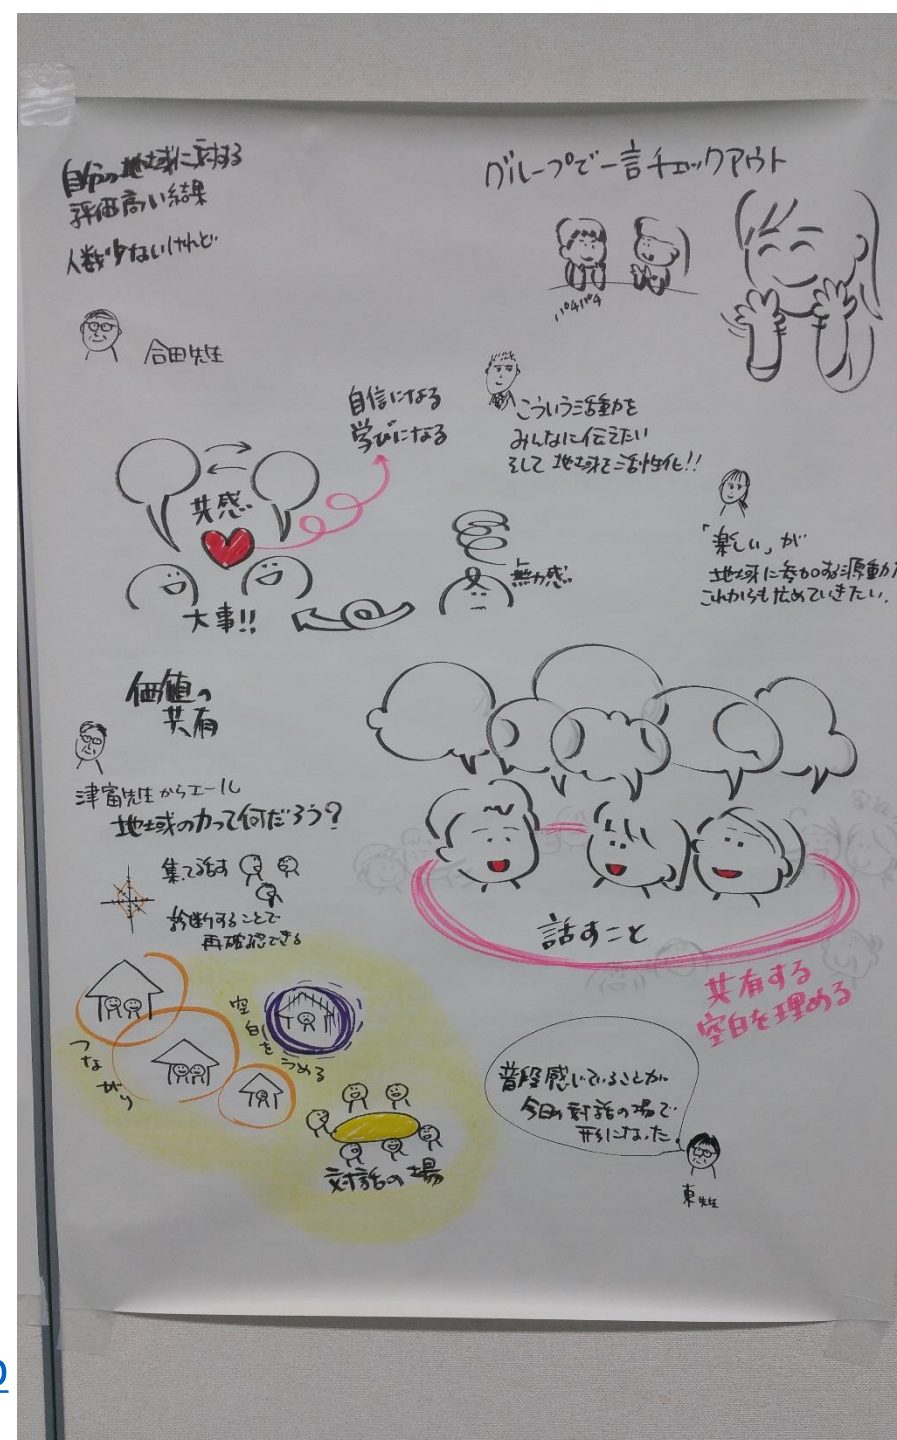 自分の地域に対する
評価高い結果
人数少ないけれど
合田先生
グループで一言チェックアウト
パチパチ
自信になる
学びになる
共感
大事!!
無力感
こういう活動を
みんなに伝えたい
そして地域を活性化!!
「楽しい」が
地域に参加する源動力
これからも広めていきたい。
価値の
共有
津富先生からエール
地域の力って何だろう?
集って話す
診断することで
再確認できる
つながり
空白をうめる
対話の場
話すこと
共有する
空白を埋める
普段感じていることが
今日の対話の場で
形になった
東先生